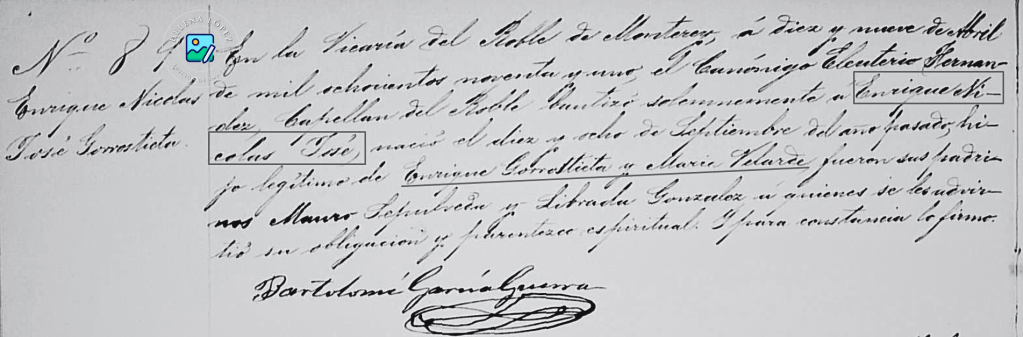 No. 89
Enrique Nicolas
José Gorrostieta.
En la Vicaría del Roble de Monterey, á diez y nueve de Abril
de mil ochocientos noventa y uno, el Canónigo Eleuterio Fernan-
dez, Capellan del Roble bautizó solemnemente a Enrique Ni-
colas José, nació el diez y ocho de Septiembre del año pasado, hi-
jo legítimo de Enrique Gorrostieta y Marie Velarde, fueron sus padri-
nos Mauro Sepulveda y Librada Gonzalez á quienes se les advir-
tió su obligacion y parentezco espiritual. Y para constancia lo firmo.
Bartolomé García Guerra